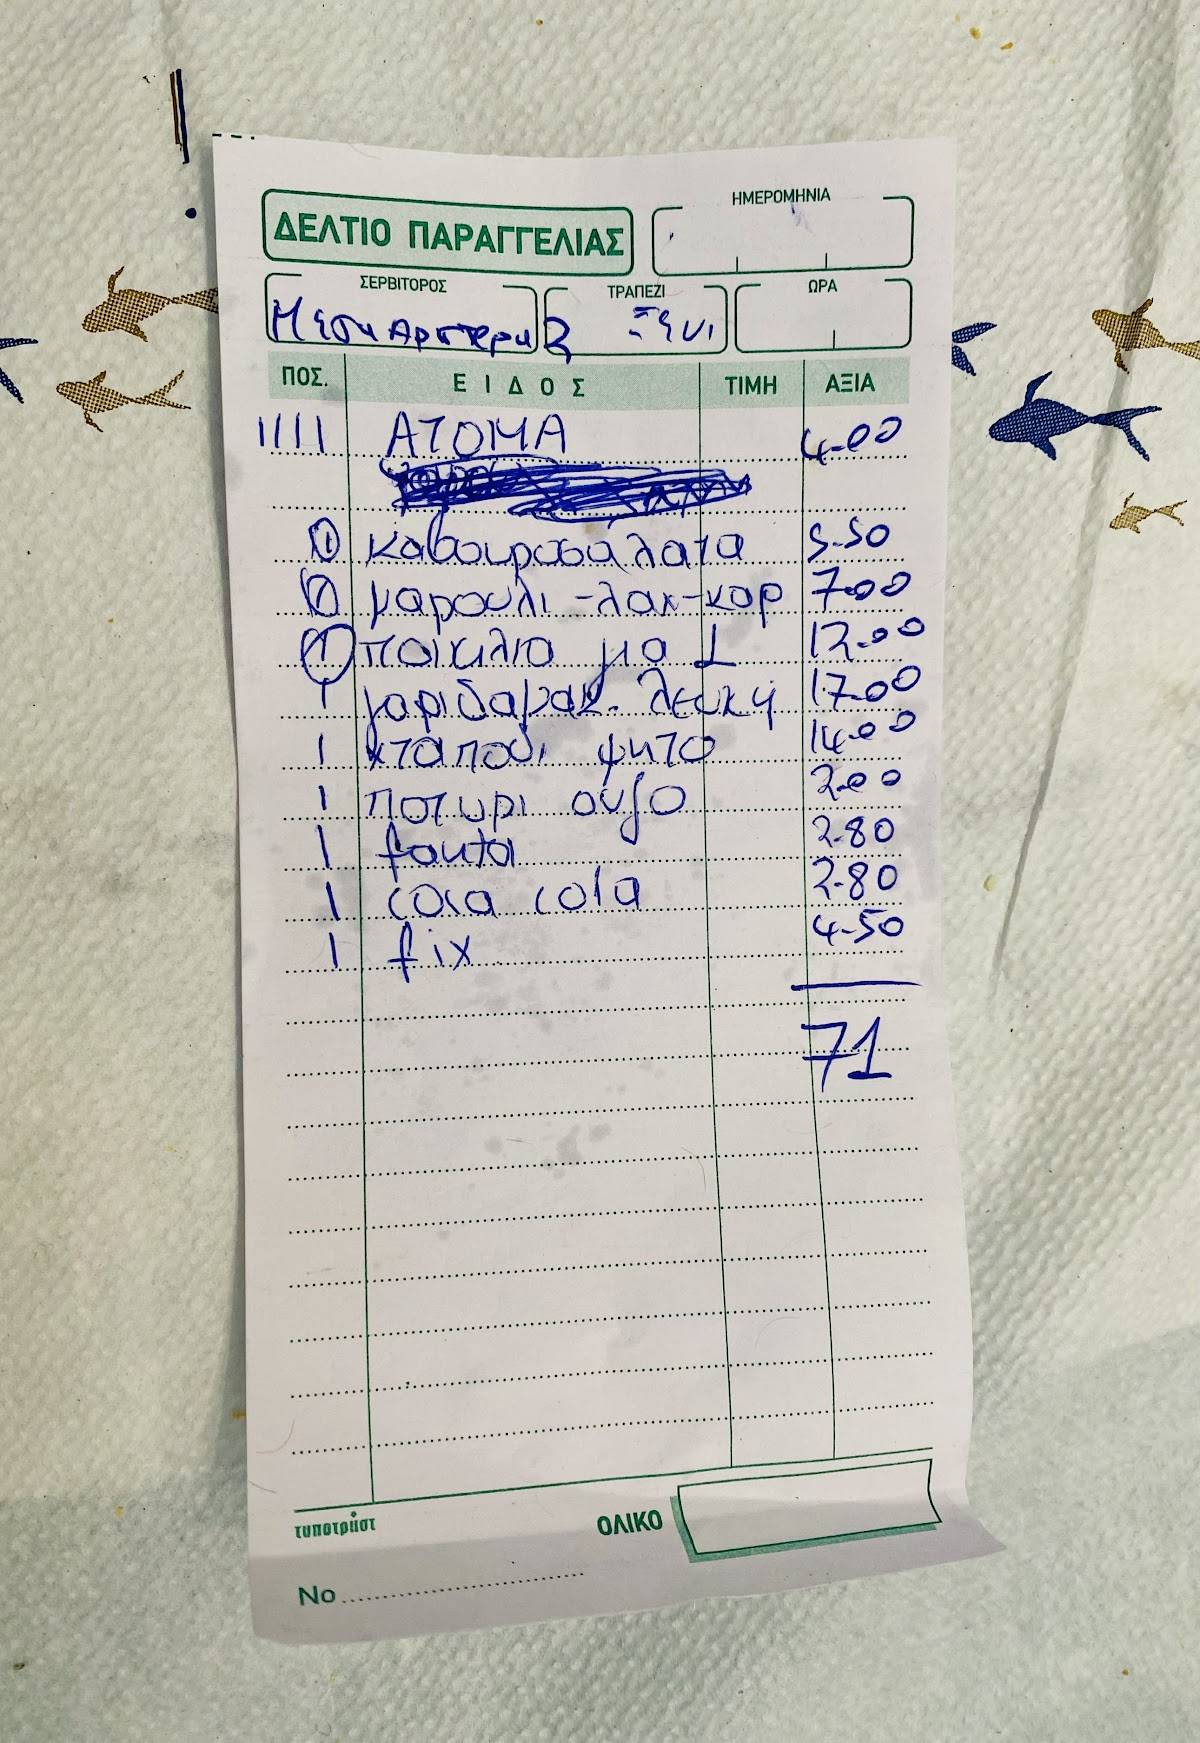 ΔΕΛΤΙΟ ΠΑΡΑΓΓΕΛΙΑΣ
ΗΜΕΡΟΜΗΝΙΑ
ΣΕΡΒΙΤΟΡΟΣ ΤΡΑΠΕΖΙ ΩΡΑ
Μεσα Αριστερα 2 Ξενι
ΠΟΣ. ΕΙΔΟΣ ΤΙΜΗ ΑΞΙΑ
1111 ΑΤΟΜΑ 4-00
1 καβουροσαλατα 5-50
1 μαρουλι-λαχ-καρ 7-00
1 ποικιλια για 1 12-00
1 γαριδαμακ. λευκη 17-00
1 χταποδι ψητο 14-00
1 ποτηρι ουζο 2-00
1 fanta 2-80
1 coca cola 2-80
1 fix 4-50
71
τυποτράστ
ΟΛΙΚΟ
No